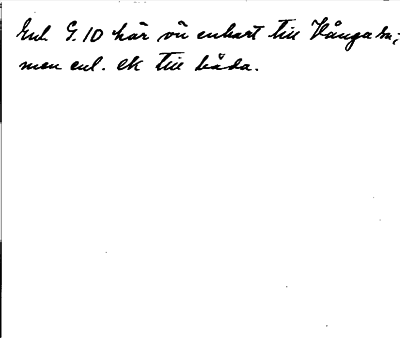 Enl G.10 hör vü enbart till Vånga sn,
men enl. ek till båda.